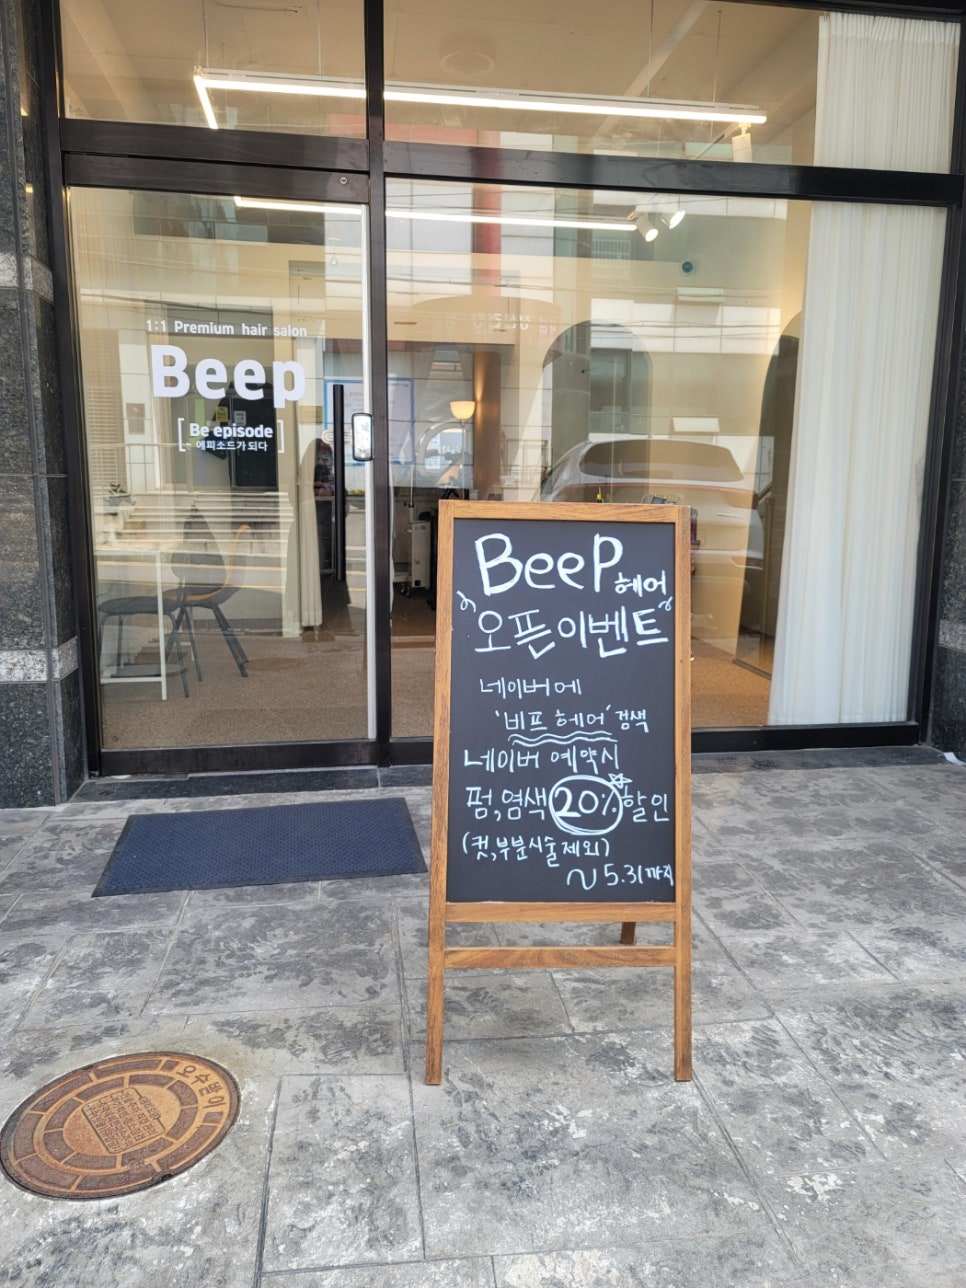 1:1 Premium hair salon
Beep
[Be episode
~ 에피소드가 되다]
BeeP 헤어
"오픈이벤트"
네이버에
'비프 헤어' 검색
네이버 예약시
펌,염색 20% 할인
(컷,부분시술제외)
~ 5.31까지
오수받이